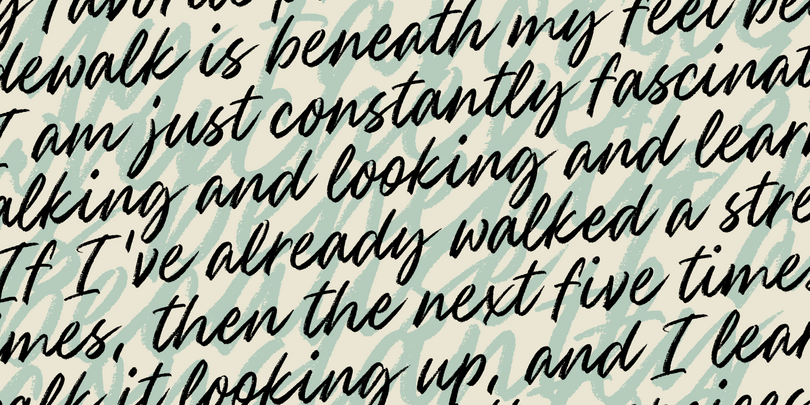 favorite
dewalk is beneath my feet be
I am just constantly fascinat
alking and looking and learn
If I've already walked a stre
imes, then the next five times
alk it looking up, and I lear